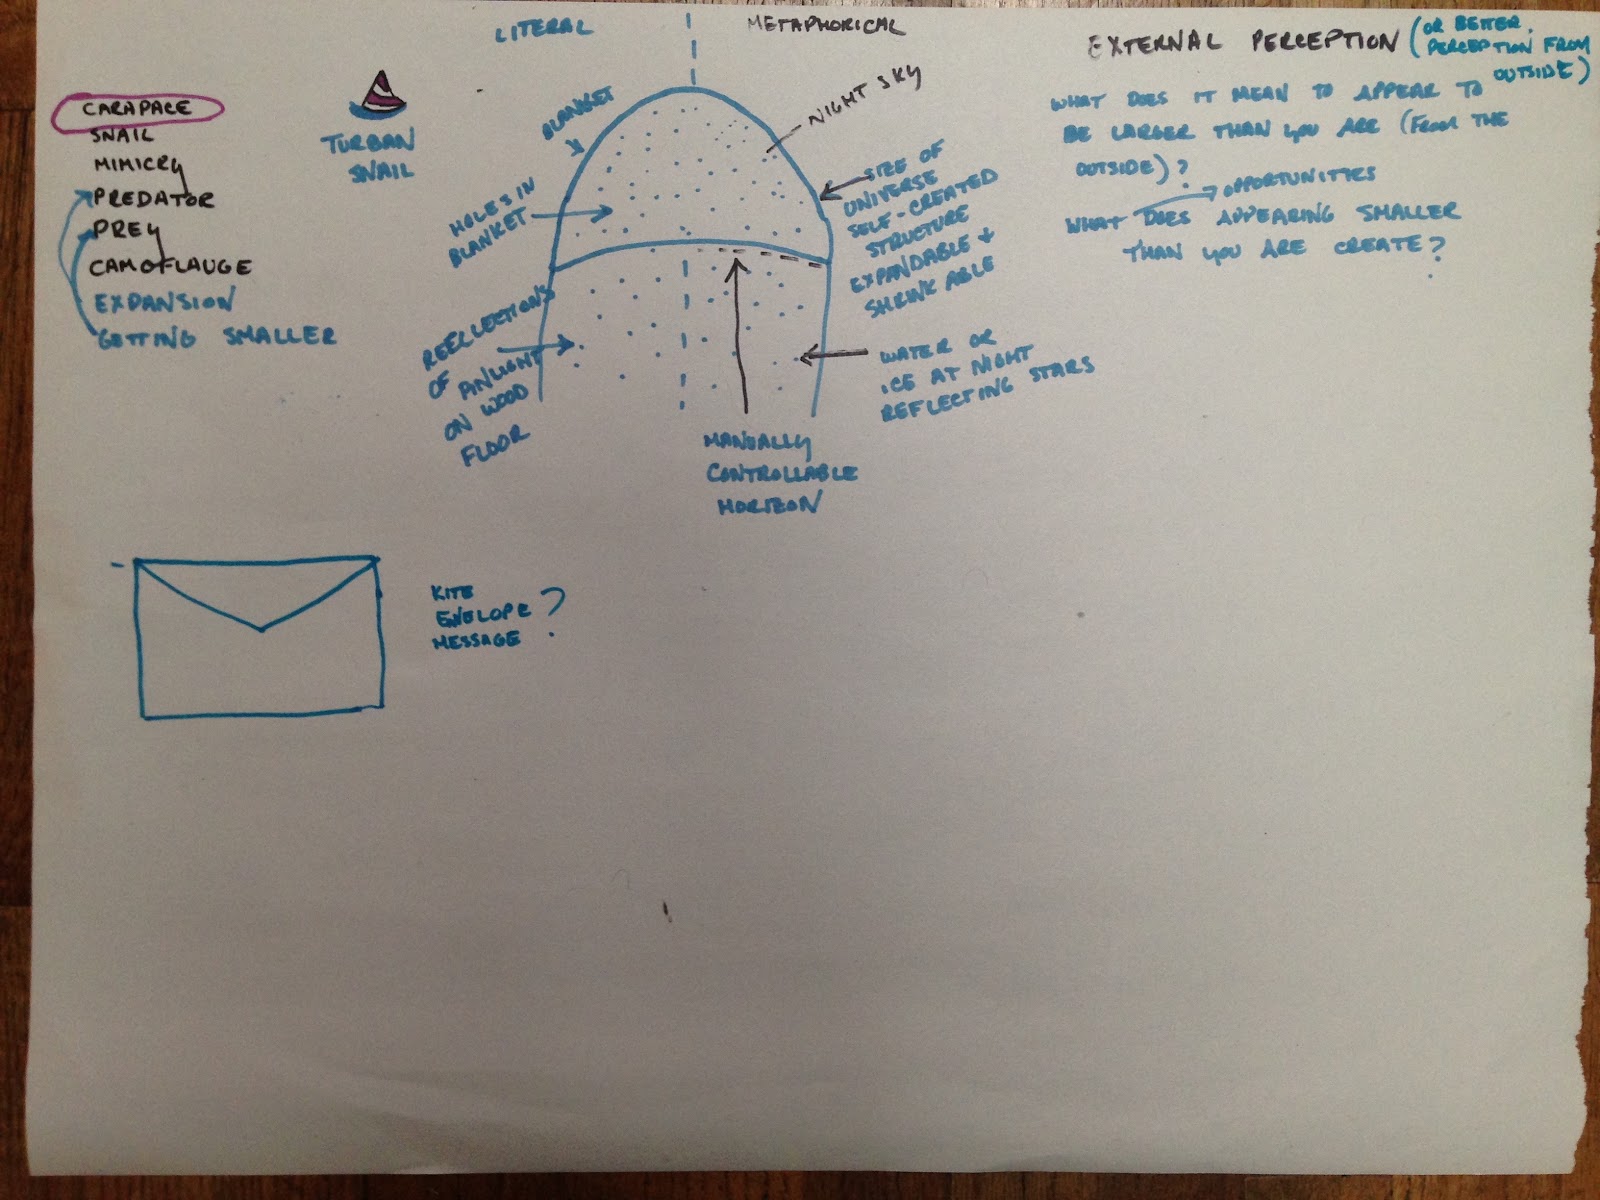 LITERAL
METAPHORICAL
CARAPACE
SNAIL
MIMICRY
PREDATOR
PREY
CAMOFLAUGE
EXPANSION
GETTING SMALLER
TURBAN
SNAIL
BLANKET
HOLES IN
BLANKET
REFLECTIONS
OF PINLIGHT
ON WOOD
FLOOR
NIGHT SKY
SIZE OF
UNIVERSE
SELF-CREATED
STRUCTURE
EXPANDABLE +
SHRINKABLE
WATER OR
ICE AT NIGHT
REFLECTING STARS
MANUALLY
CONTROLLABLE
HORIZON
EXTERNAL PERCEPTION (OR BETTER,
PERCEPTION FROM
OUTSIDE)
WHAT DOES IT MEAN TO APPEAR TO
BE LARGER THAN YOU ARE (FROM THE
OUTSIDE)?
OPPORTUNITIES
WHAT DOES APPEARING SMALLER
THAN YOU ARE CREATE?
KITE
ENELOPE ?
MESSAGE